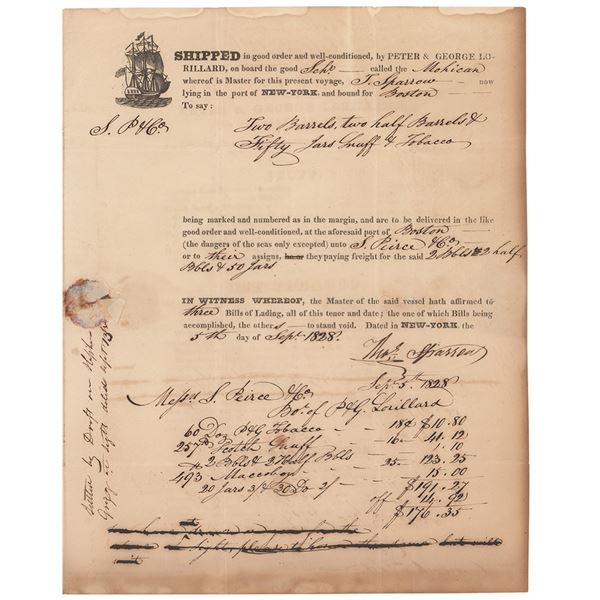 SHIPPED in good order and well-conditioned, by PETER & GEORGE LO-
RILLARD, on board the good Schr called the Mohican
whereof is Master for this present voyage, T. Sparrow now
lying in the port of NEW-YORK, and bound for Boston
To say:
S. P & Co
Two Barrels, two half Barrels &
Fifty Jars Snuff & Tobacco
being marked and numbered as in the margin, and are to be delivered in the like
good order and well-conditioned, at the aforesaid port of Boston
(the dangers of the seas only excepted) unto S. Peirce & Co
or to their assigns, he or they paying freight for the said 2 Bbls 2 half
Bbls & 50 Jars
IN WITNESS WHEREOF, the Master of the said vessel hath affirmed to
three Bills of Lading, all of this tenor and date; the one of which Bills being
accomplished, the others to stand void. Dated in NEW-YORK, the
5th day of Sept 1828.
Thos Sparrow
Sept 5th 1828
Messrs S. Peirce & Co
Bot of P & G Lorillard
60 Doz P & G Tobacco 18c $10.80
257 lb Scotch Snuff 16. 41.12
2 Bbls & 2 Half Bbls 1.10
493 Maccoboy 25. 123.25
20 Jars 3/ & 30 Do 2/ 15.00
$191.27
off 14.92
$176.35
Settled by Draft on